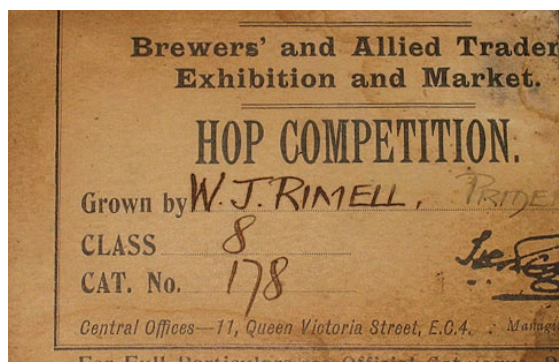 Brewers' and Allied Trader
Exhibition and Market.
HOP COMPETITION.
Grown by W. J. RIMELL, PRIDE
CLASS 8
CAT. No. 178
Central Offices—11, Queen Victoria Street, E.C.4. : Manag
For Full Particulars